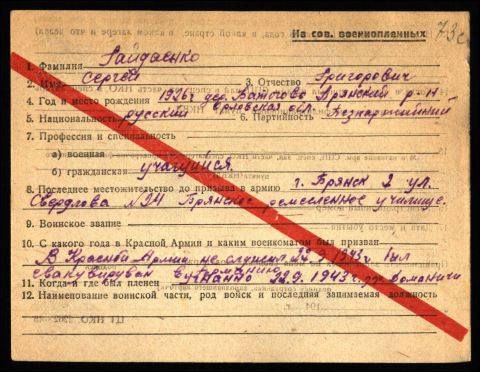 Из сов. военнопленных
73с
1. Фамилия Гайдаенко
2. Имя Сергей 3. Отчество Григорович
4. Год и место рождения 1926г дер. Ватогово Брянский р-н
Орловская обл.
5. Национальность русский 6. Партийность Безпартийный
7. Профессия и специальность
а) военная
б) гражданская учащийся
8. Последнее местожительство до призыва в армию г. Брянск 2 ул.
Свердлова №24 Брянское ремесленное училище.
9. Воинское звание
10. С какого года в Красной Армии и каким военкоматом был призван
В Красной Армии не служил 22.9.1943г. был
эвакуирован в Германию
11. Когда и где был пленен Угнанно 22.9.1943г. Комаричи
12. Наименование воинской части, род войск и последняя занимаемая должность